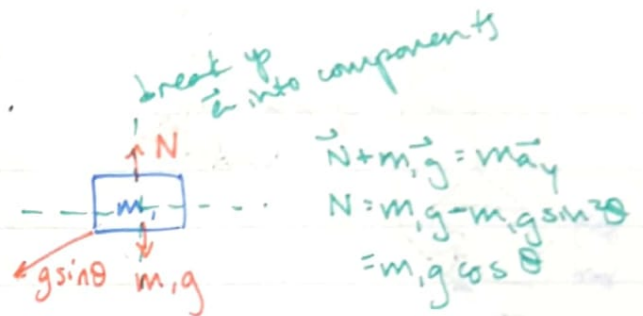 break up
a⃗ into components
N
m₁
g sinθ
m₁g
N⃗ + m₁g⃗ = ma⃗y
N = m₁g - m₁g sin²θ
= m₁g cos θ